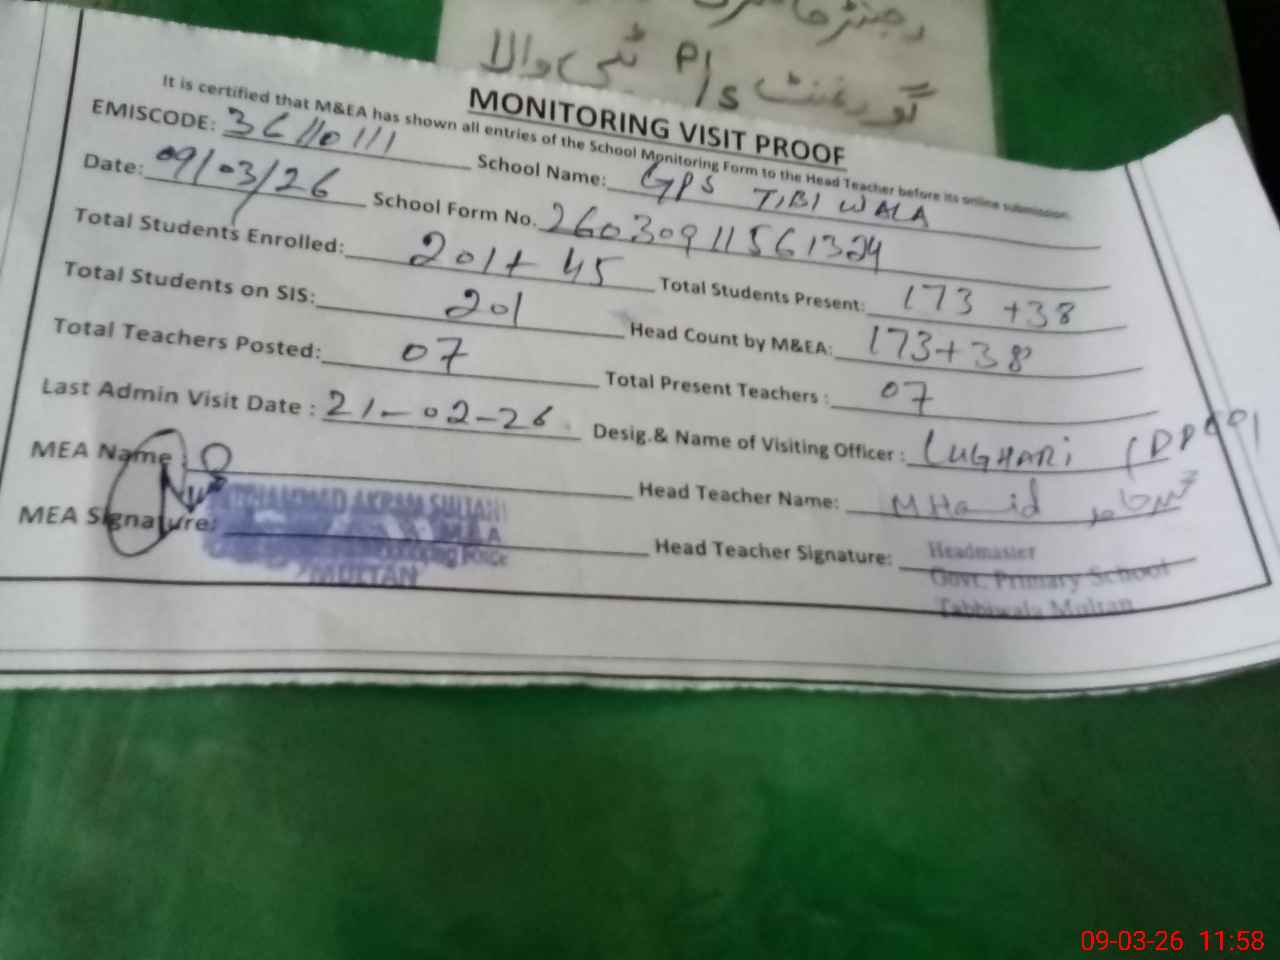 گورنمنٹ P/s ٹبی والا
MONITORING VISIT PROOF
It is certified that M&EA has shown all entries of the School Monitoring Form to the Head Teacher before its online submission
EMISCODE: 36110111 School Name: GPS TIBI WALA
Date: 09/03/26 School Form No. 26030911561324
Total Students Enrolled: 201+45 Total Students Present: 173+38
Total Students on SIS: 201 Head Count by M&EA: 173+38
Total Teachers Posted: 07 Total Present Teachers : 07
Last Admin Visit Date : 21-02-26 Desig.& Name of Visiting Officer : LUGHARI
MEA Name Head Teacher Name: M Hamid
MUHAMMAD AKRAM SULTANI
MEA Signature: Head Teacher Signature:
MULTAN
Headmaster
Govt. Primary School
Tabbiwala Multan
09-03-26 11:58